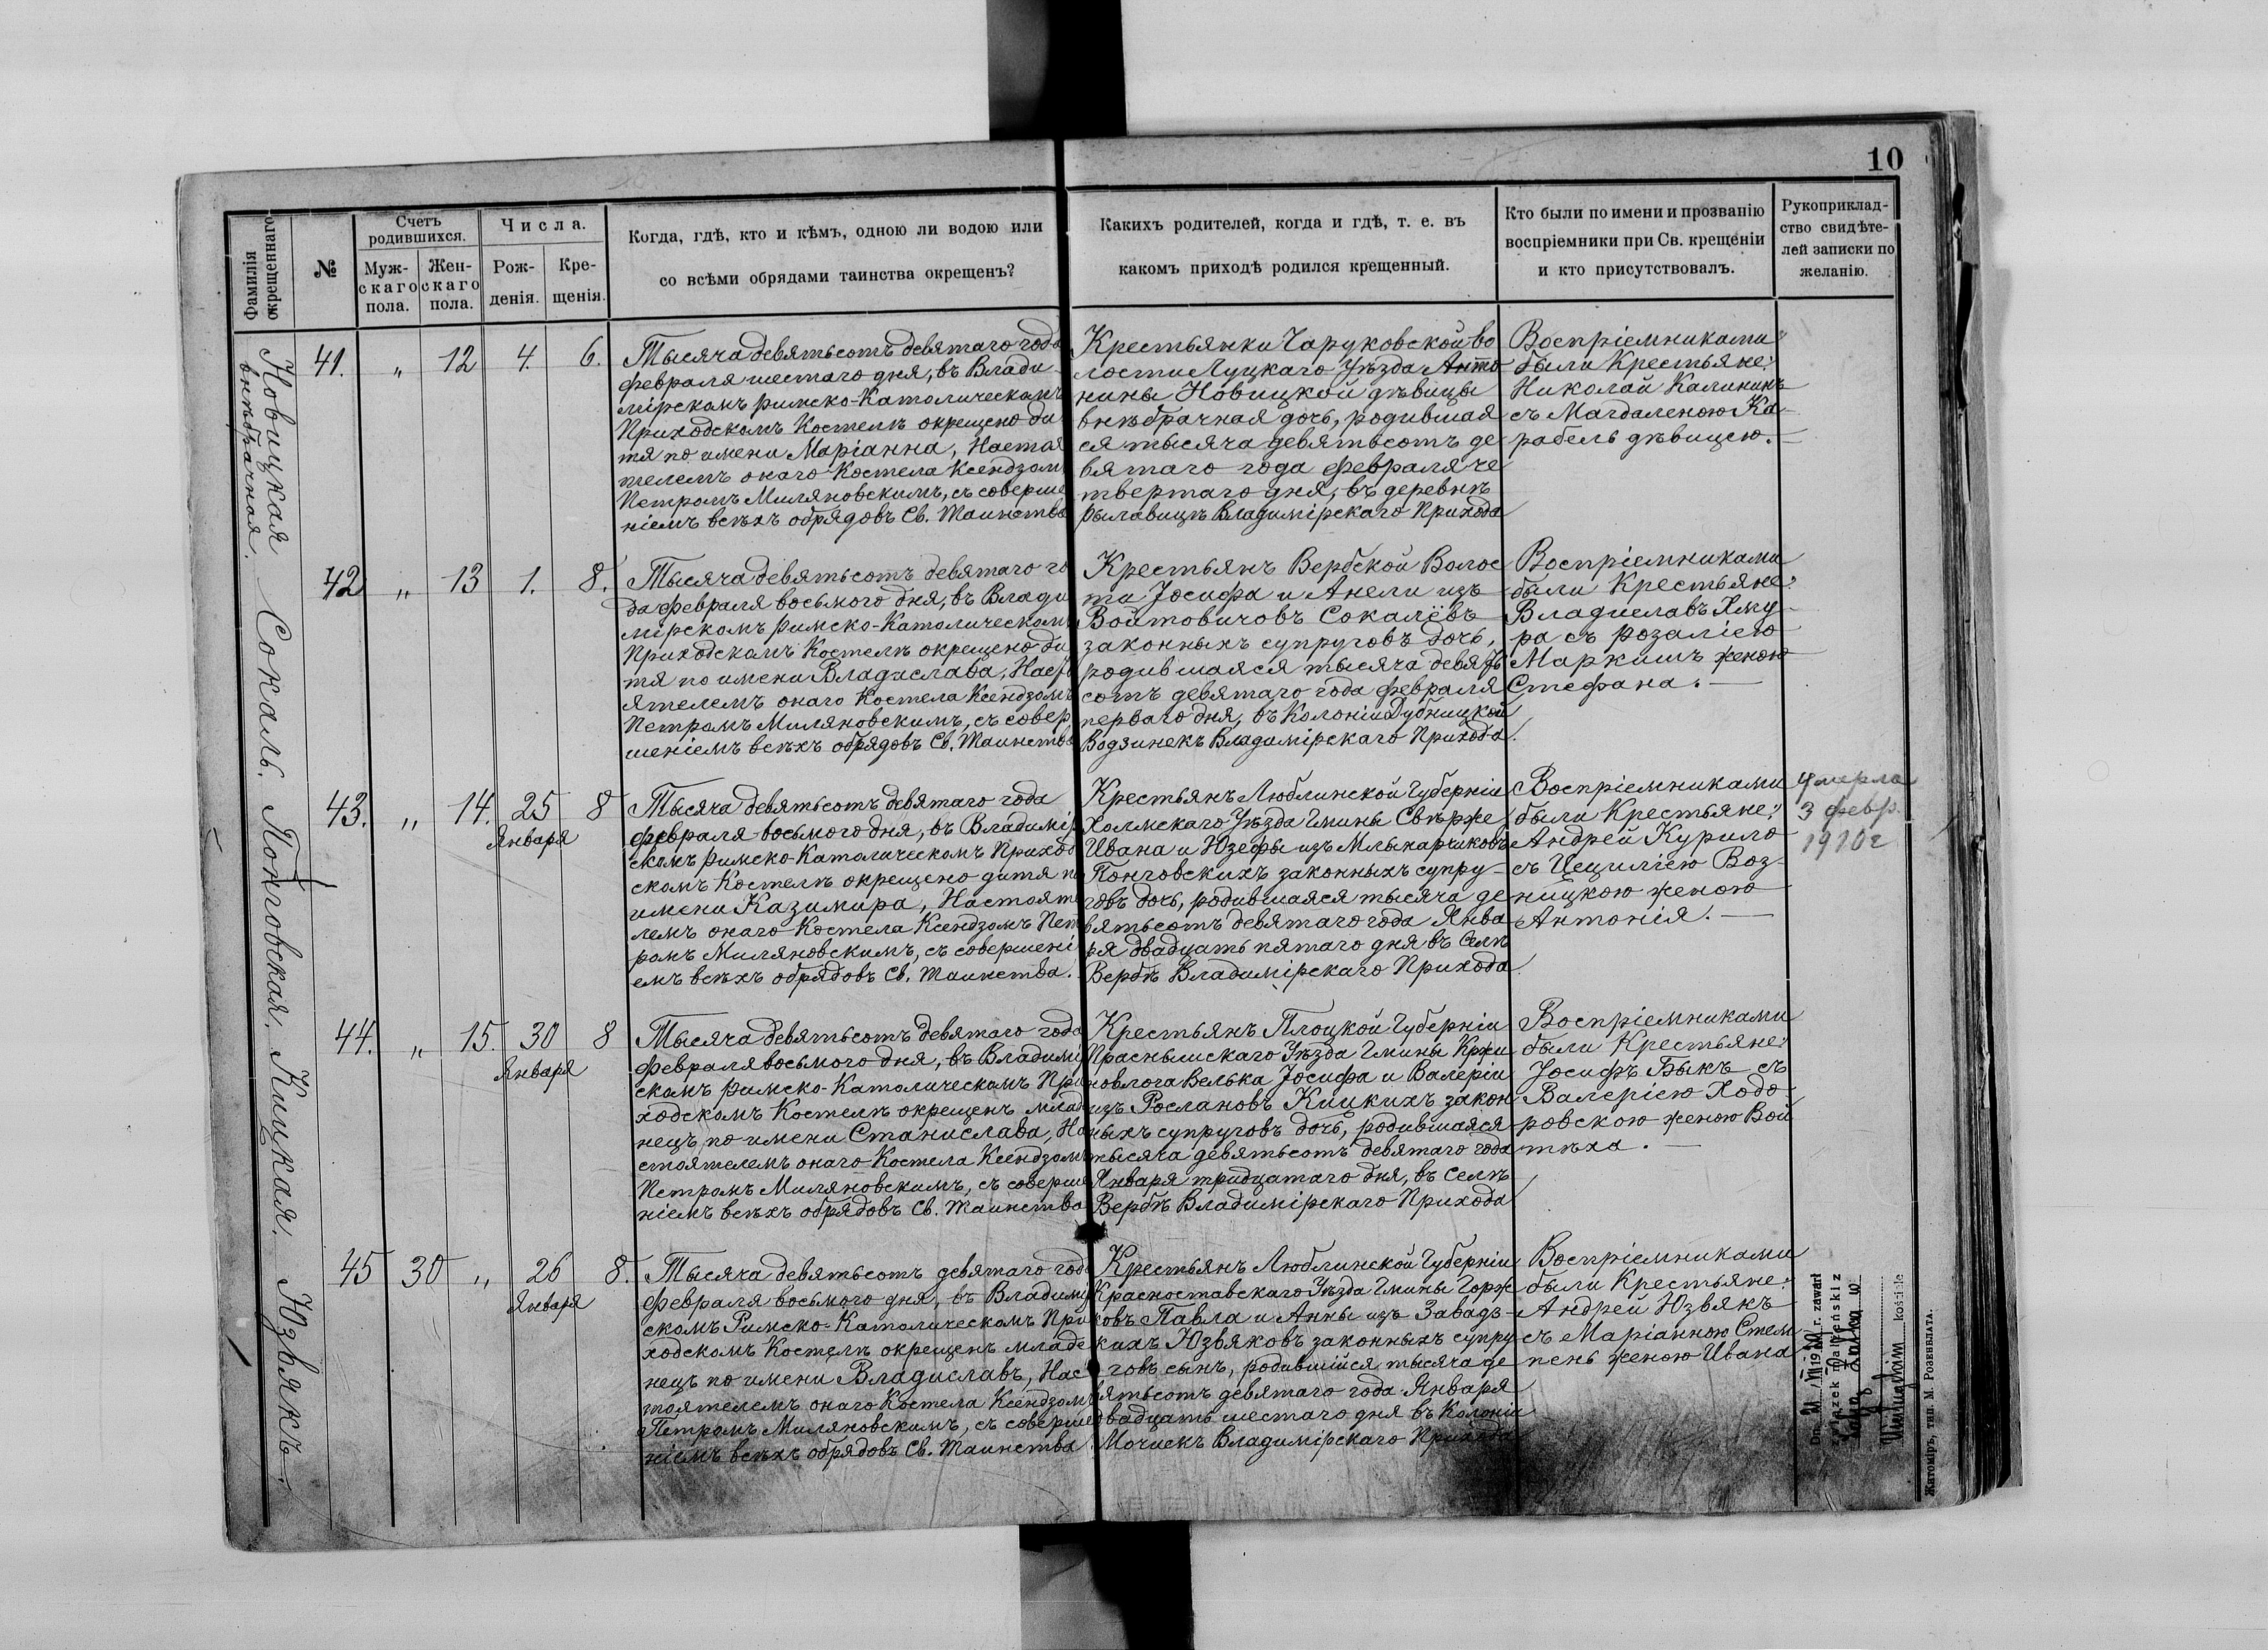 10
Фамилія окрещеннаго
№
Счетъ родившихся.
Мужскаго пола.
Женскаго пола.
Числа.
Рожденія.
Крещенія.
Когда, гдѣ, кто и кѣмъ, одною ли водою или
со всѣми обрядами таинства окрещенъ?
Какихъ родителей, когда и гдѣ, т. е. въ
какомъ приходѣ родился крещенный.
Кто были по имени и прозванію
воспріемники при Св. крещеніи
и кто присутствовалъ.
Рукоприклад-
ство свидѣте-
лей записки по
желанію.
Новицкая
внѣбрачная.
41. " 12 4. 6.
Тысяча девятьсотъ девятаго года
февраля шестаго дня, въ Влади-
мірскомъ римско-Католическомъ
Приходскомъ Костелѣ окрещено ди
тя по имени Маріанна, Настоя
телемъ онаго Костела Ксендзомъ
Петромъ Миляновскимъ, съ соверше
ніемъ всѣхъ обрядовъ Св. Таинства
Крестьянки Чаруковской во
лости Луцкаго Уѣзда Анто
нины Новицкой дѣвицы
внѣбрачная дочь, родившая
ся тысяча девятьсотъ де
вятаго года февраля че
твертаго дня, въ деревнѣ
Рылавицѣ Владимірскаго Прихода
Воспріемниками
были Крестьяне:
Николай Калининъ
съ Магдаленою Ка-
рабель дѣвицею.
Сокаль.
42 " 13 1. 8.
Тысяча девятьсотъ девятаго го
да февраля восьмого дня, въ Влади
мірскомъ римско-Католическомъ
Приходскомъ Костелѣ окрещено ди
тя по имени Владислава, Насто
ятелемъ онаго Костела Ксендзомъ
Петромъ Миляновскимъ, съ совер
шеніемъ всѣхъ обрядовъ Св. Таинства
Крестьянъ Вербской Волос
ти Іосифа и Анели изъ
Войтовичовъ Сокалёвъ
законныхъ супруговъ дочь,
родившаяся тысяча девять
сотъ девятаго года февраля
перваго дня, въ Колоніи Дубницкой
Водзинекъ Владимірскаго Прихода.
Воспріемниками
были Крестьяне:
Владиславъ Хму-
ра съ Розаліею
Маркишъ женою
Стефана.
Понговская.
43. " 14. 25 Января 8
Тысяча девятьсотъ девятаго года
февраля восьмого дня, въ Владимір
скомъ римско-Католическомъ Приход
скомъ Костелѣ окрещено дитя по
имени Казимира, Настояте
лемъ онаго Костела Ксендзомъ Пет
ромъ Миляновскимъ, съ совершені
емъ всѣхъ обрядовъ Св. Таинства.
Крестьянъ Люблинской Губерніи
Холмскаго Уѣзда Гмины Свѣрже
Ивана и Юзефы изъ Млынарчиковъ
Понговскихъ законныхъ супру-
говъ дочь, родившаяся тысяча де
вятьсотъ девятаго года Янва
ря двадцать пятаго дня въ Селѣ
Вербѣ Владимірскаго Прихода
Воспріемниками
были Крестьяне:
Андрей Курило
съ Цециліею Воз-
ницкою женою
Антонія.
умерла
3 февр.
1910 г
Кицкая.
44. " 15. 30 Января 8
Тысяча девятьсотъ девятаго года
февраля восьмого дня, въ Владимір
скомъ римско-Католическомъ При
ходскомъ Костелѣ окрещенъ млад
нецъ по имени Станислава, На
стоятелемъ онаго Костела Ксендзомъ
Петромъ Миляновскимъ, съ соверше
ніемъ всѣхъ обрядовъ Св. Таинства
Крестьянъ Плоцкой Губерніи
Праснышскаго Уѣзда Гмины Кржи
новлога Велька Іосифа и Валеріи
изъ Рослановъ Кицкихъ закон
ныхъ супруговъ дочь, родившаяся
тысяча девятьсотъ девятаго года
Января тридцатаго дня, въ Селѣ
Вербѣ Владимірскаго Прихода
Воспріемниками
были Крестьяне:
Іосифъ Быкъ съ
Валеріею Ходо-
ровскою женою Вой
тѣха.
Юзвякъ.
45 30 " 26 Января 8.
Тысяча девятьсотъ девятаго года
февраля восьмого дня, въ Владимір
скомъ Римско-Католическомъ При
ходскомъ Костелѣ окрещенъ младе
нецъ по имени Владиславъ, Нас
тоятелемъ онаго Костела Ксендзомъ
Петромъ Миляновскимъ, съ соверше
ніемъ всѣхъ обрядовъ Св. Таинства
Крестьянъ Люблинской Губерніи
Красноставскаго Уѣзда Гмины Горж
ковъ Павла и Анны изъ Завадз-
кихъ Юзвяковъ законныхъ супру
говъ сынъ, родившійся тысяча де
вятьсотъ девятаго года Января
двадцать шестаго дня въ Колоніи
Мочискъ Владимірскаго Прихода
Воспріемниками
были Крестьяне:
Андрей Юзвякъ
съ Маріанною Стем
пень женою Ивана
Dn. r. zawarł
związek małżeński z
w
kościele
Житоміръ, тип. М. Розенблата.